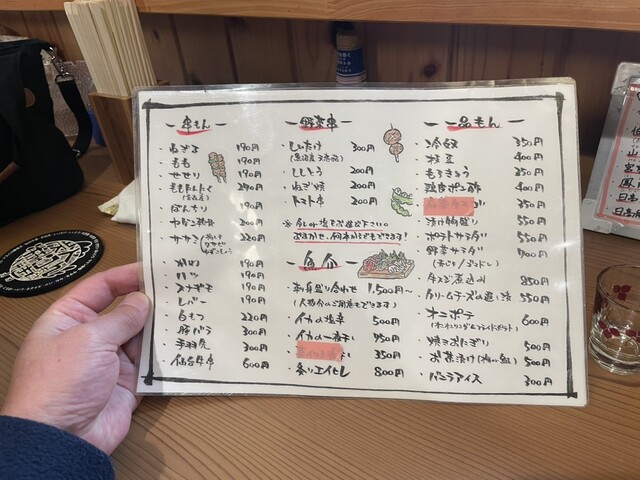 串もん
ねぎま 190円
もも 190円
せせり 190円
ももにんにく
ぼんちり 190円
ヤゲン軟骨 200円
ササミ 220円
かわ 190円
ハツ 190円
スナギモ 190円
レバー 190円
白もつ 220円
豚バラ 300円
手羽先 300円
仙台牛串 600円
野菜串
しいたけ 300円
ししとう 200円
ねぎ焼 200円
トマト串 200円
おまかせ、何本からでもできます!
魚介
刺身盛り合わせ 1,500円~
(人数分のご用意もできます)
イカの塩辛 500円
イカの一夜干し 950円
350円
炙りエイヒレ 800円
一品もん
冷奴 350円
枝豆 400円
もろきゅう 350円
鶏皮ポン酢 400円
350円
漬け物盛り 550円
ポテトサラダ 550円
野菜サラダ 700円
牛すじ煮込み 850円
クリームチーズの 550円
オニポテ 600円
(オニオンリング&フライドポテト)
焼きおにぎり 500円
お茶漬け 500円
バニラアイス 300円